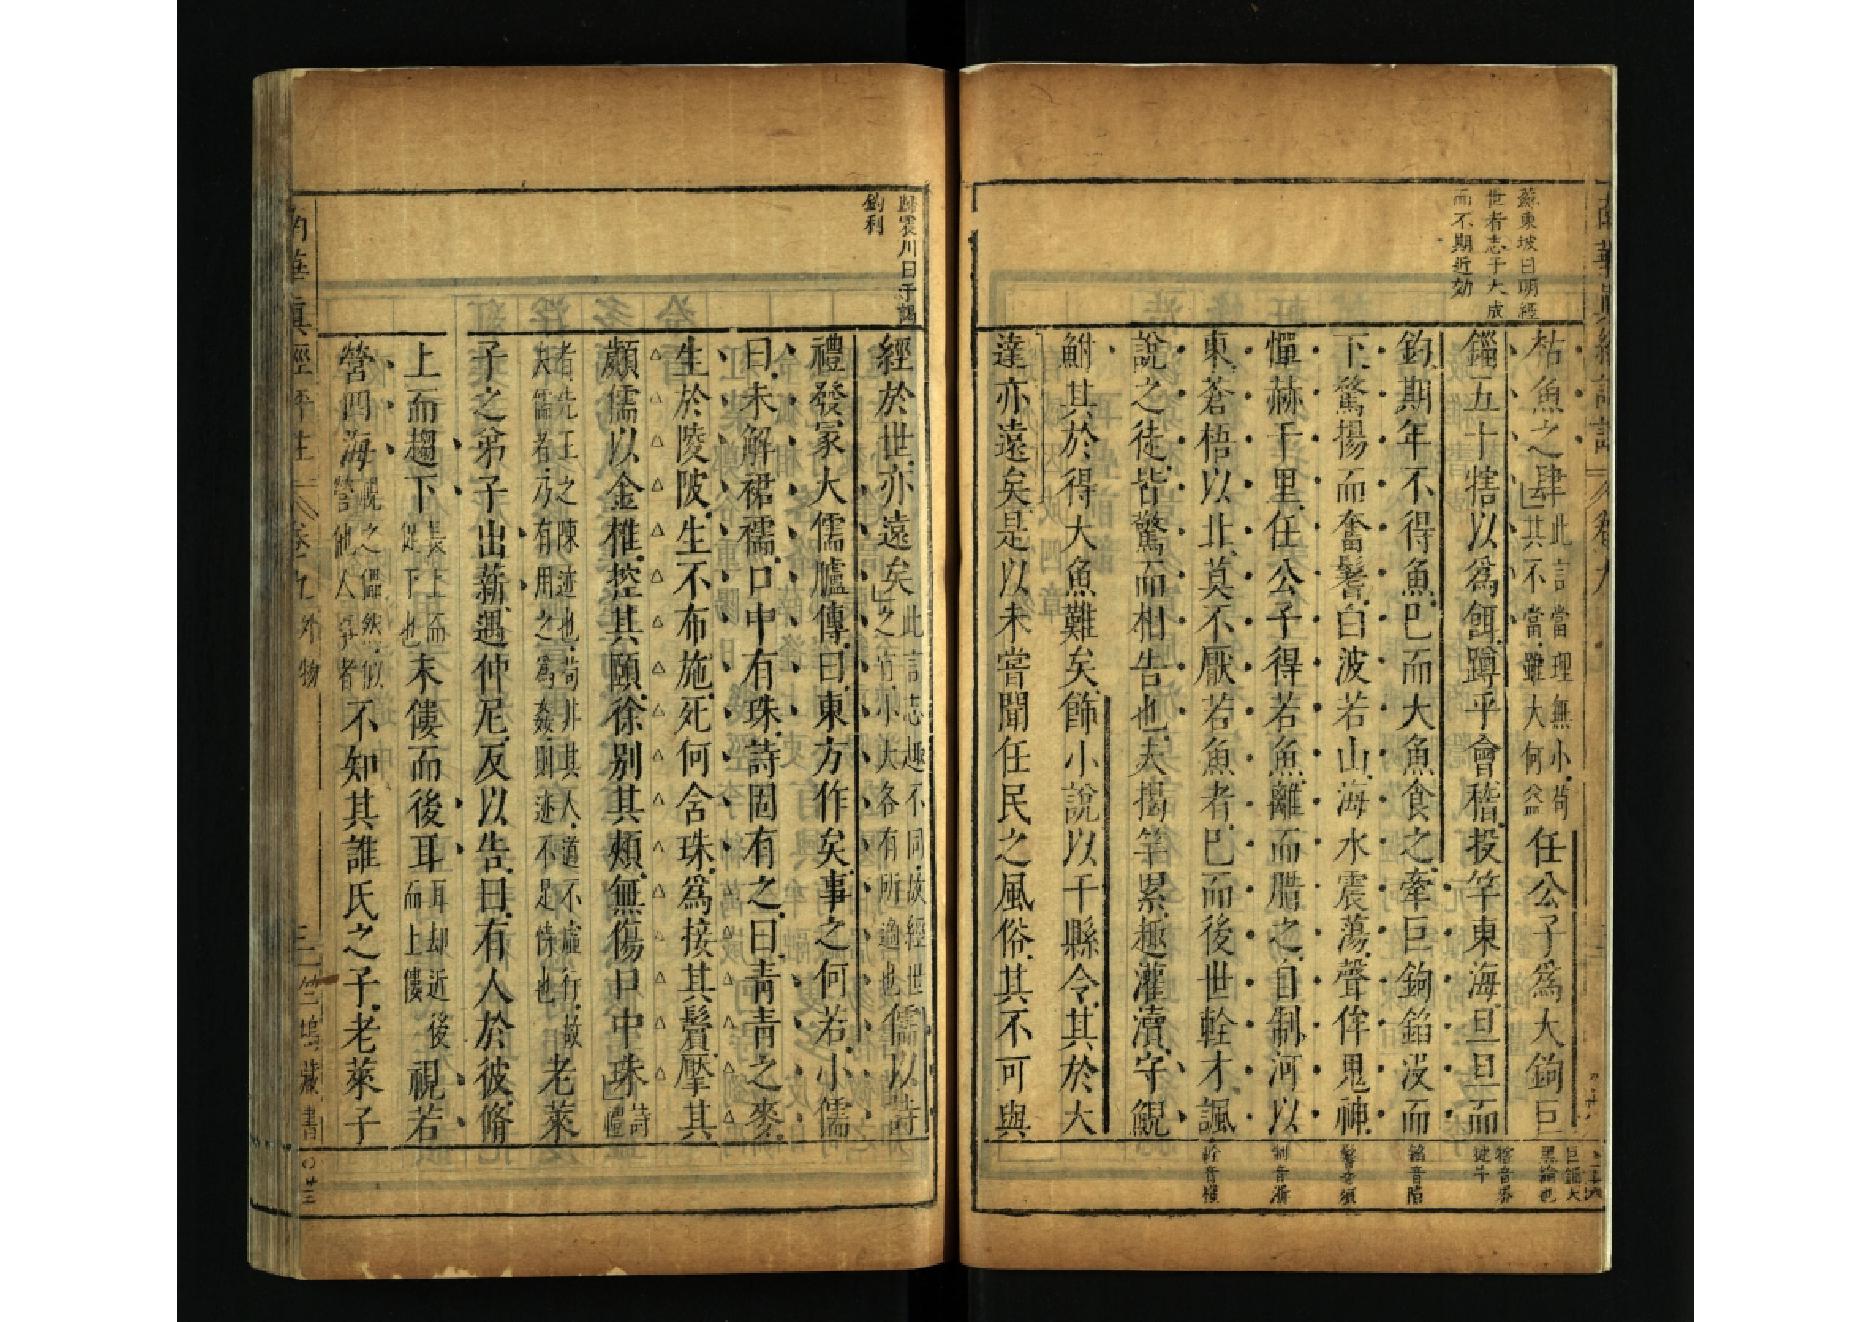 蘇東坡曰明經
世者志于大成
而不期近効
枯魚之肆此言當理無小苟其不當雖大何益任公子爲大鉤巨
緇五十犗以爲餌蹲乎會稽投竿東海旦旦而
釣期年不得魚巳而大魚食之牽巨鉤錎沒而
下驚揚而奮鬐白波若山海水震蕩聲侔鬼神
憚赫千里任公子得若魚離而腊之自制河以
東蒼梧以北莫不厭若魚者巳而後世輇才諷
說之徒皆驚而相告也夫揭竿累趣灌瀆守鯢
鮒其於得大魚難矣飾小說以干縣令其於大
達亦遠矣是以未嘗聞任氏之風俗其不可與
犗音界
犍牛
錎音陷
制音浙
歸震川曰予謂
釣利
經於世亦遠矣此言志趣不同故經世之宜小大各有所適也儒以詩
禮發冢大儒臚傳曰東方作矣事之何若小儒
曰未解裙襦口中有珠詩固有之曰青青之麥
生於陵陂生不布施死何含珠爲接其鬢擪其
顪儒以金椎控其頤徐別其頰無傷口中珠詩禮
者先王之陳迹也苟非其人道不虛行故夫儒者乃有用之爲姦則迹不足恃也老萊
子之弟子出薪遇仲尼反以告曰有人於彼脩
上而趨下長上而促下也末僂而後耳耳却近後而上僂視若
營四海視之儡然似營他人事者不知其誰氏之子老萊子
南華眞經評註
卷九外物
三
竺塢藏書